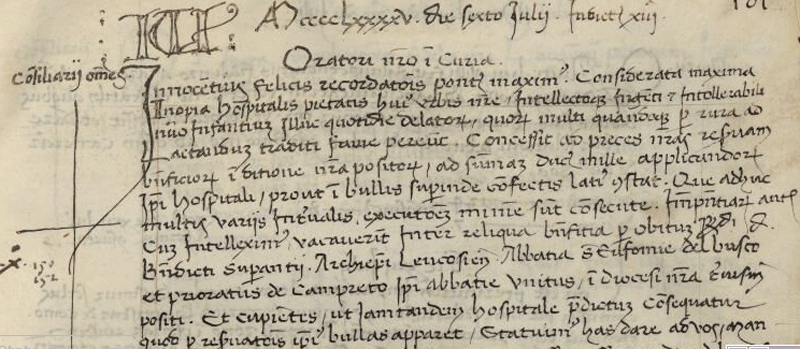 Mcccclxxxxv. die sexto Julij. Indict. xiij.
Oratori nro i Curia.
Cosiliarij oms.
Innocentius felicis recordatois pont maxim. Considerata maxima
Inopia hospitalis pietatis hui urbis nre, Intellectoq Ingenti & Intollerabili
Infantium illuc quotidie delator, quor multi quandoq p rura ad
Lactandum traditi fame pereut. Concessit ad preces nras reservam
bnficior i ditione nra positor, ad sumaz duc mille applicandor
Ipi hospitali, prout i bullis superinde cofectis lati 9stat. Que adhuc
multis varijs Interuallis, executoez minime sut consecute. Impntiar aut
Cuz Intelleximus, vacauerit Inter reliqua bnfitia p obitu Rdi d.
Bndicti Superantij. Archiepi Leucosien. Abbatia S Eufomie del busco
et prioratus de Campreto Ipi abbatie vnitus, i diocesi nra
positi. Et cupietes, ut Iamtandem hospitale pdictus Consequatur
quod p reseruatois ipi bullas apparet, Statuim has dare ad vos, man